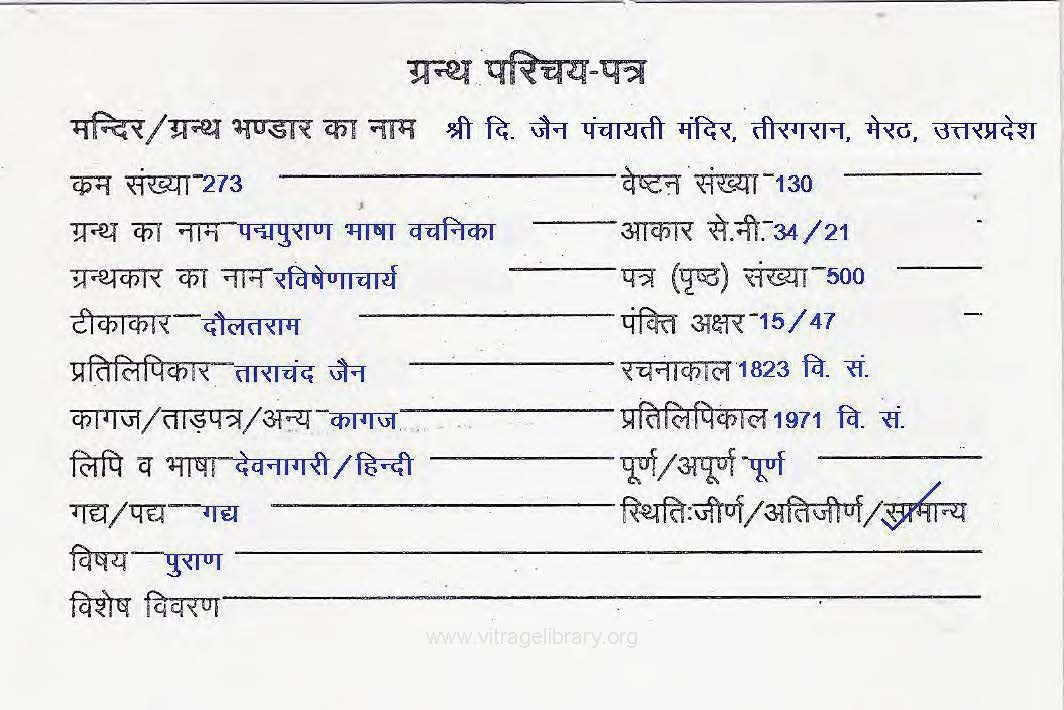 ग्रन्थ परिचय-पत्र
मन्दिर/ग्रन्थ भण्डार का नाम श्री दि. जैन पंचायती मंदिर, तीरगरान, मेरठ, उत्तरप्रदेश
क्रम संख्या 273 वेष्टन संख्या 130
ग्रन्थ का नाम पद्मपुराण भाषा वचनिका आकार से.मी. 34/21
ग्रन्थकार का नाम रविषेणाचार्य पत्र (पृष्ठ) संख्या 500
टीकाकार दौलतराम पंक्ति अक्षर 15/47
प्रतिलिपिकार ताराचंद जैन रचनाकाल 1823 वि. सं.
कागज/ताड़पत्र/अन्य कागज प्रतिलिपिकाल 1971 वि. सं.
लिपि व भाषा देवनागरी/हिन्दी पूर्ण/अपूर्ण पूर्ण
गद्य/पद्य गद्य स्थिति:जीर्ण/अतिजीर्ण/सामान्य
विषय पुराण
विशेष विवरण
www.vitragelibrary.org